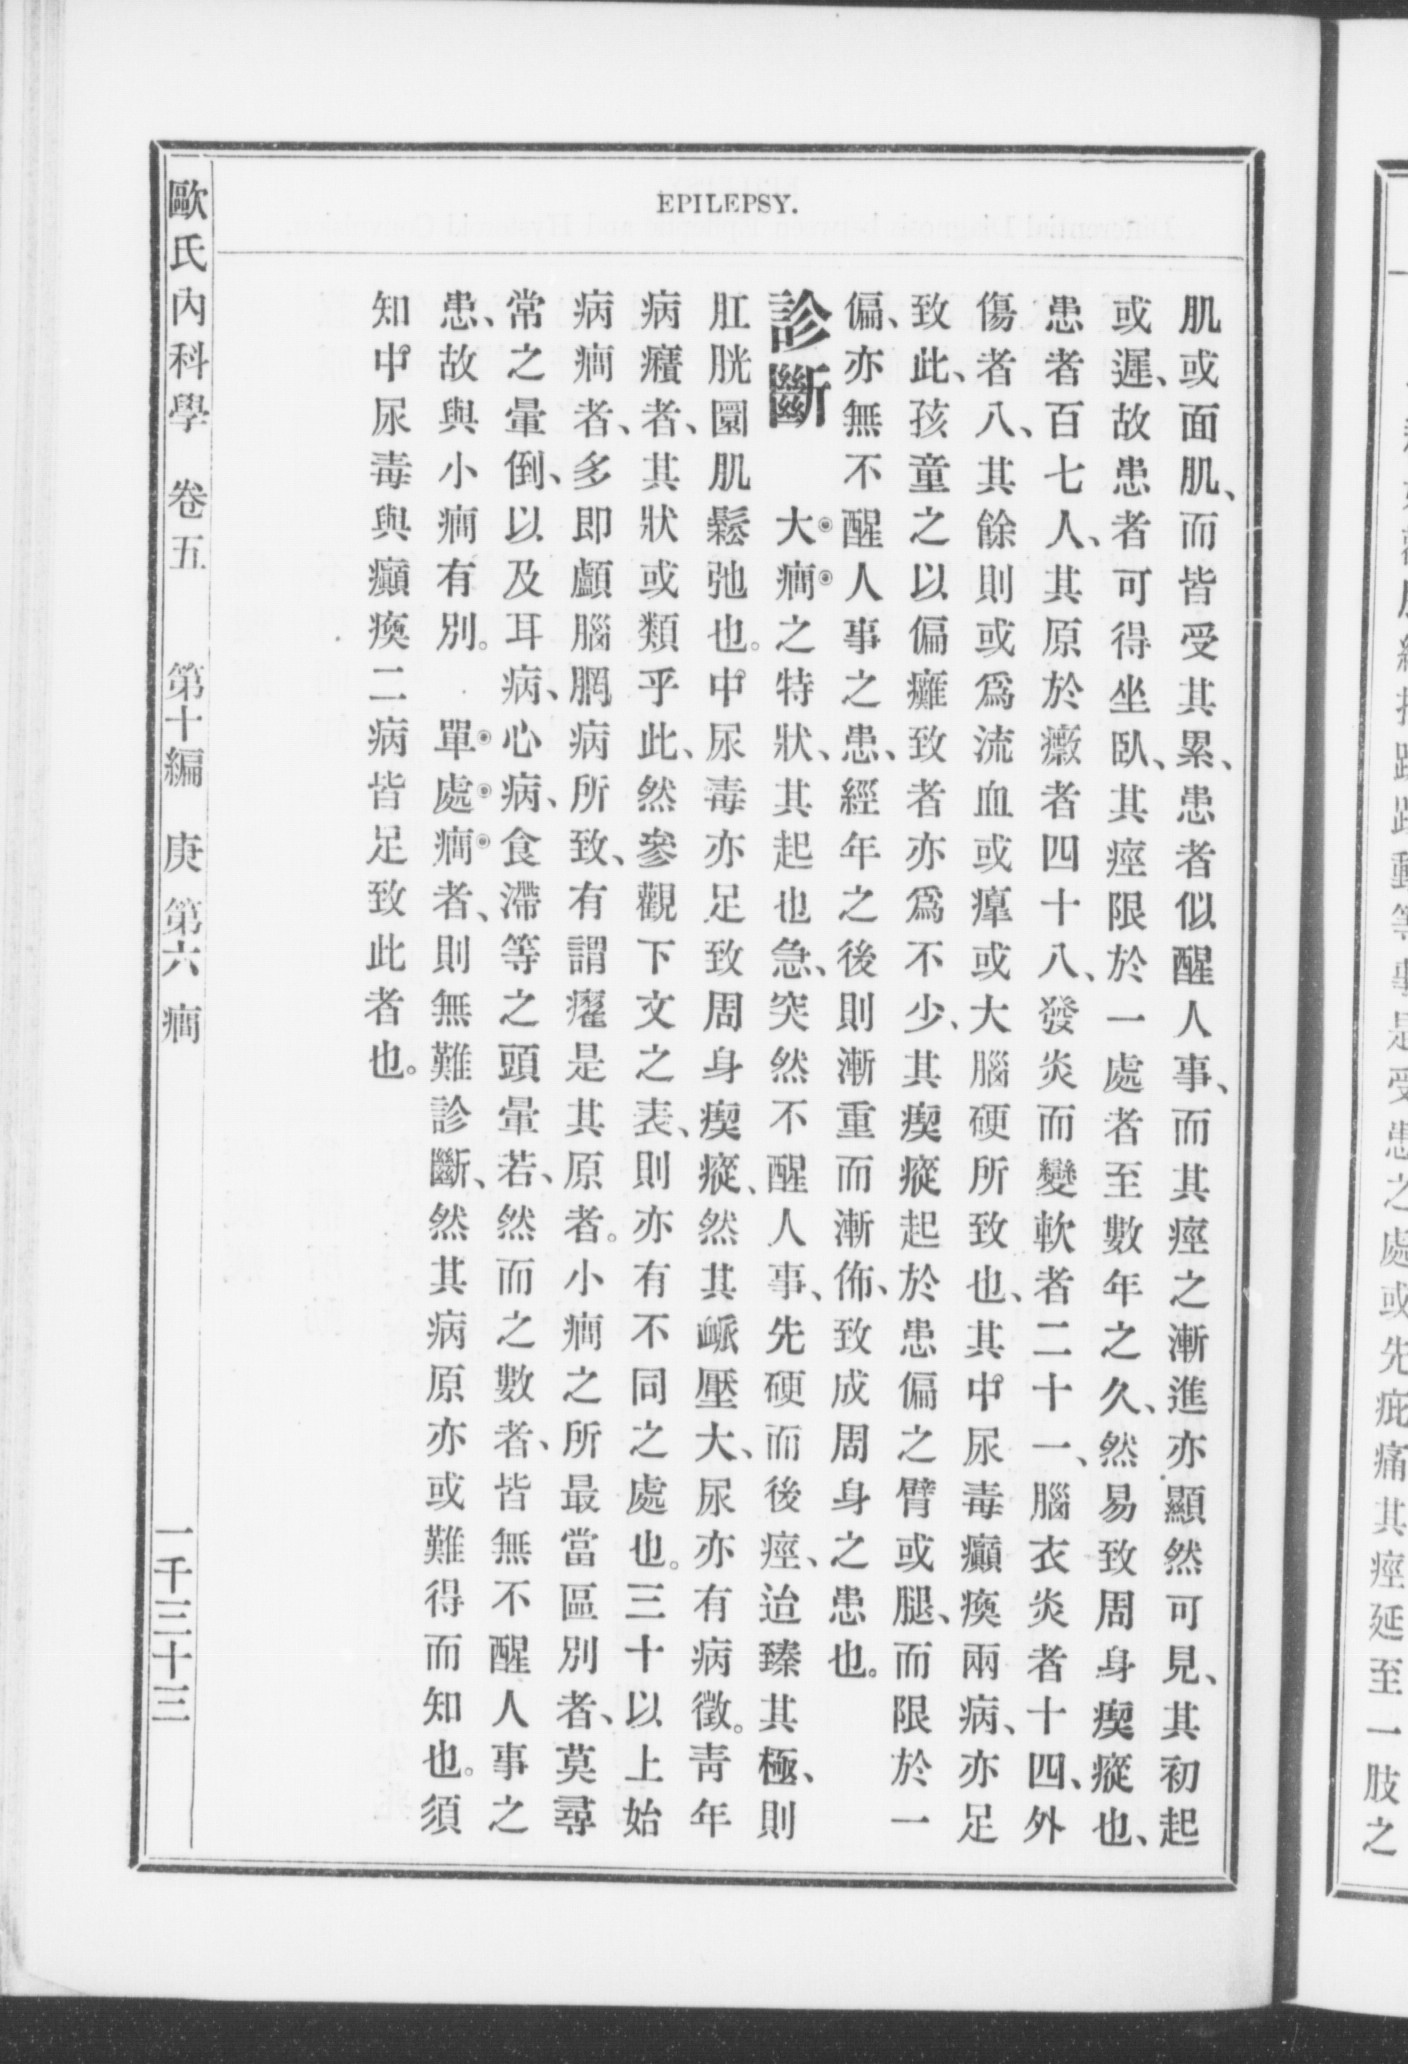 EPILEPSY.
肌或面肌、而皆受其累、患者似醒人事、而其痙之漸進亦顯然可見、其初起
或遲、故患者可得坐臥、其痙限於一處者至數年之久、然易致周身瘈瘲也、
患者百七人、其原於癥者四十八、發炎而變軟者二十一、腦衣炎者十四、外
傷者八、其餘則或爲流血或癉或大腦硬所致也、其中尿毒癲瘓兩病、亦足
致此、孩童之以偏癱致者亦爲不少、其瘈瘲起於患偏之臂或腿、而限於一
偏、亦無不醒人事之患、經年之後則漸重而漸佈、致成周身之患也。
診斷　大癇之特狀、其起也急、突然不醒人事、先硬而後痙、迨臻其極、則
肛胱圜肌鬆弛也。中尿毒亦足致周身瘈瘲、然其衇壓大、尿亦有病徵。靑年
病癪者、其狀或類乎此、然參觀下文之表、則亦有不同之處也。三十以上始
病癇者、多即顱腦膶病所致、有謂癯是其原者。小癇之所最當區別者、莫尋
常之暈倒、以及耳病、心病、食滯等之頭暈若、然而之數者、皆無不醒人事之
患、故與小癇有別。　單處癇者、則無難診斷、然其病原亦或難得而知也。須
知中尿毒與癲瘓二病皆足致此者也。
歐氏內科學　卷五　第十編　庚　第六　癇　一千三十三
之肢一至延痙其痛